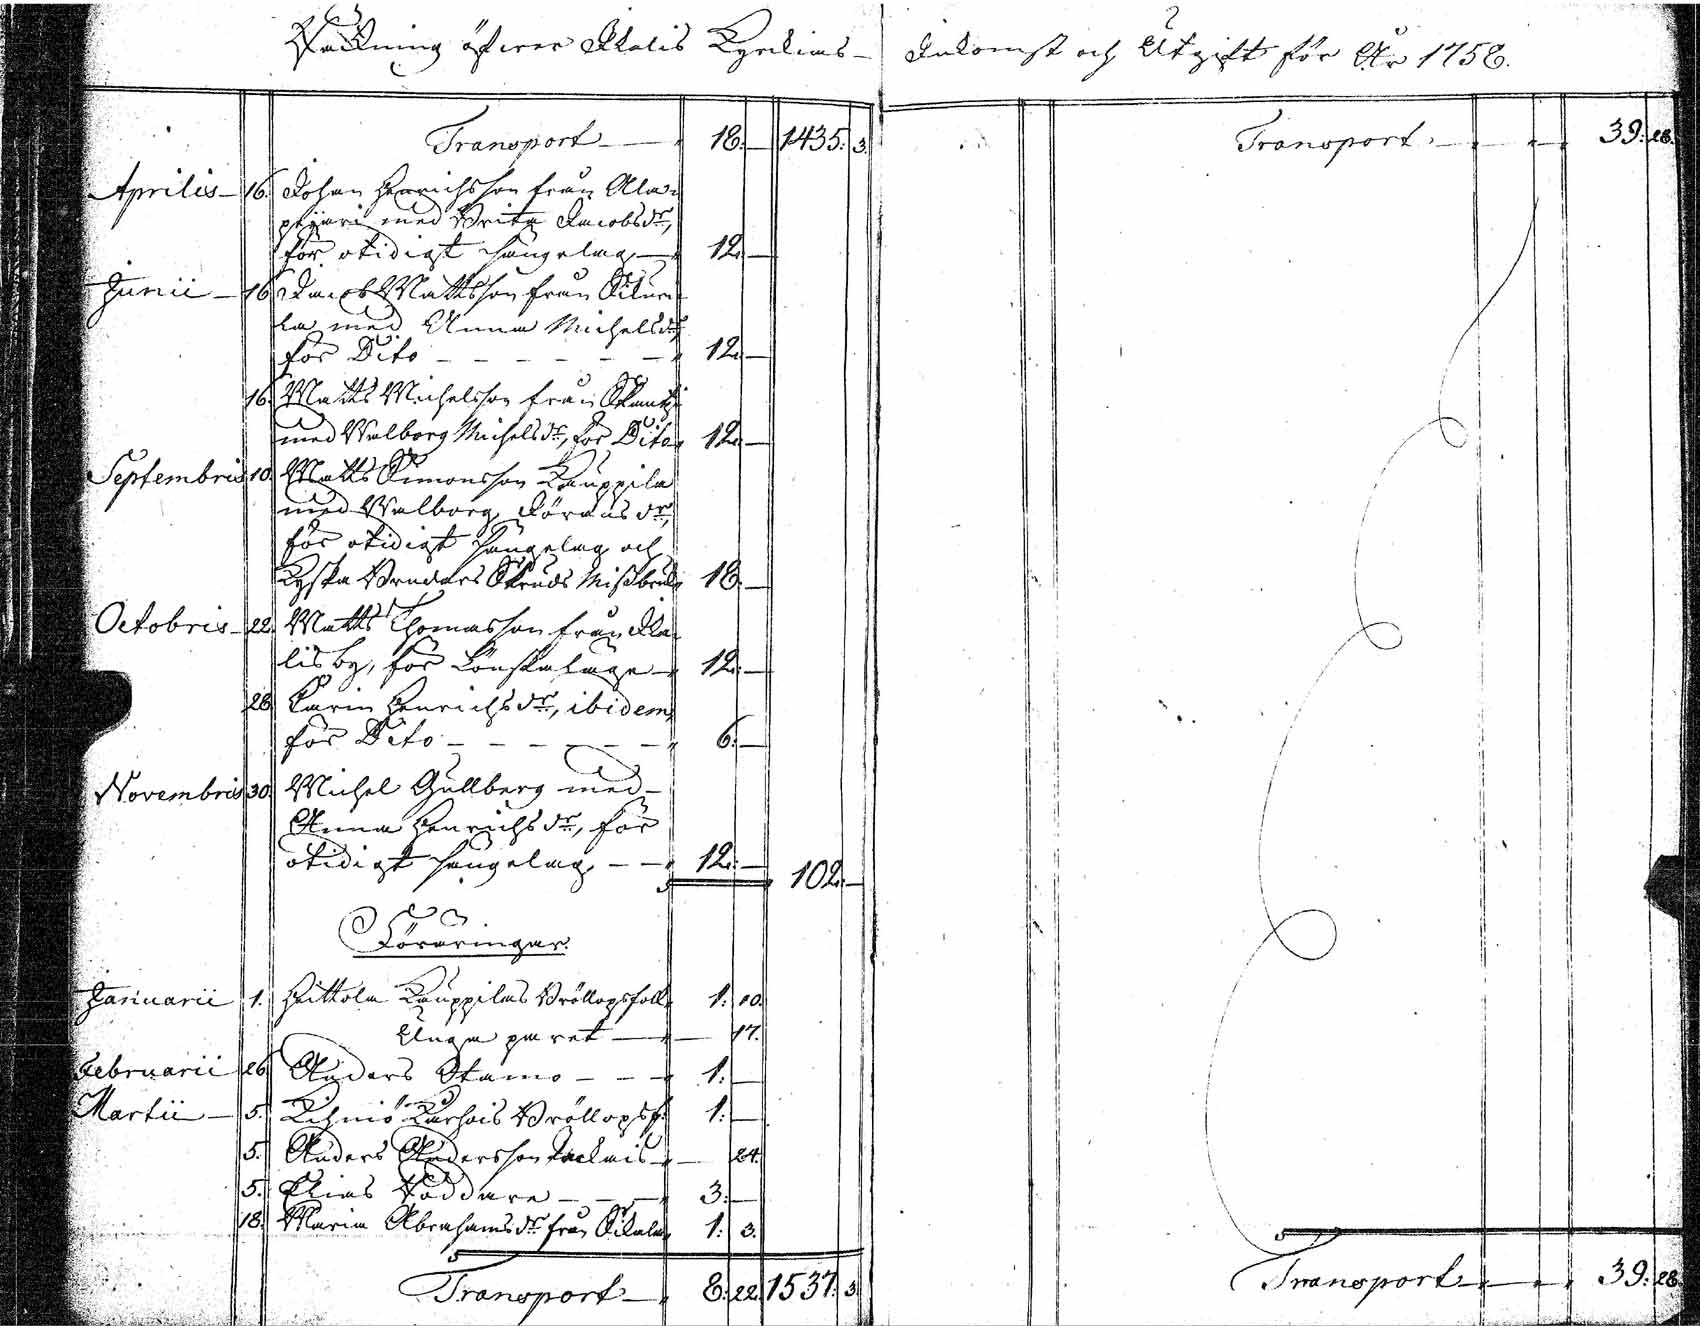 Räkning öfver Kalis Kyrckias – Inkomst och Utgift för År 1758.
Transport – 18. – 1435. 3.
Aprilis – 16. Johan Henrichsson från Ala-
med Brita Jacobs dr,
för otidigt sängelag – 12. –
Junii – 16. Jacob Mattsson från
la med Anna Michels dr,
för Dito – – – – – – 12. –
16. Matts Michelsson från
med Walborg Michels dr, för Dito 12. –
Septembris 10. Matts Simonsson Kauppila
med Walborg Görans dr,
för otidigt sängelag och
Kyska Brudars Skruds Missbruk 18. –
Octobris – 22. Matts Thomasson från Ka-
lis by, för Lönskaläge – 12. –
28. Karin Henrichs dr, ibidem,
för Dito – – – – – – 6. –
Novembris 30. Michel Gullberg med –
Anna Henrichs dr, för
otidigt sängelag, – – 12. – 102. –
Föräringar.
Januarii 1. Hittola Kauppilas Bröllopsfolk 1. 10.
Unga paret – – 17.
Februarii 26. Anders Stamo – – – 1. –
Martii – 5. Kihniö Karhois Bröllopsf. 1. –
5. Anders Andersson – 24.
5. Elias Böddare – – – 3. –
18. Maria Abrahams dr från 1. 3.
Transport – 8. 22. 1537. 3.
Transport – – – 39. 28.
Transport – – – 39. 28.